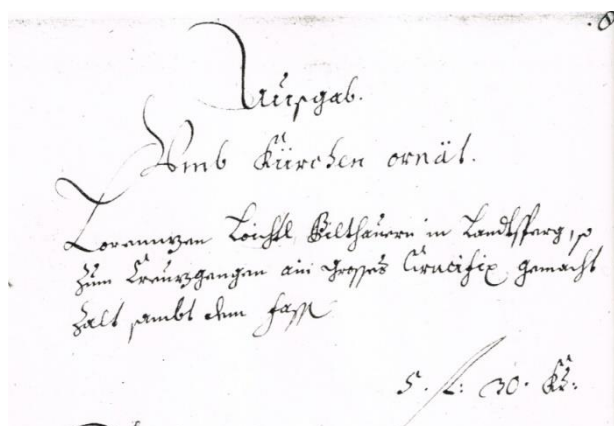 .8
Ausgab.
Umb Kürchen ornät.
Lorenntzen Loichtl Bilthauern in Landtsperg, so
zum Creützgengen ain grosses Crucifix gemacht
zalt sambt dem fass
5. f: 30. Kr: